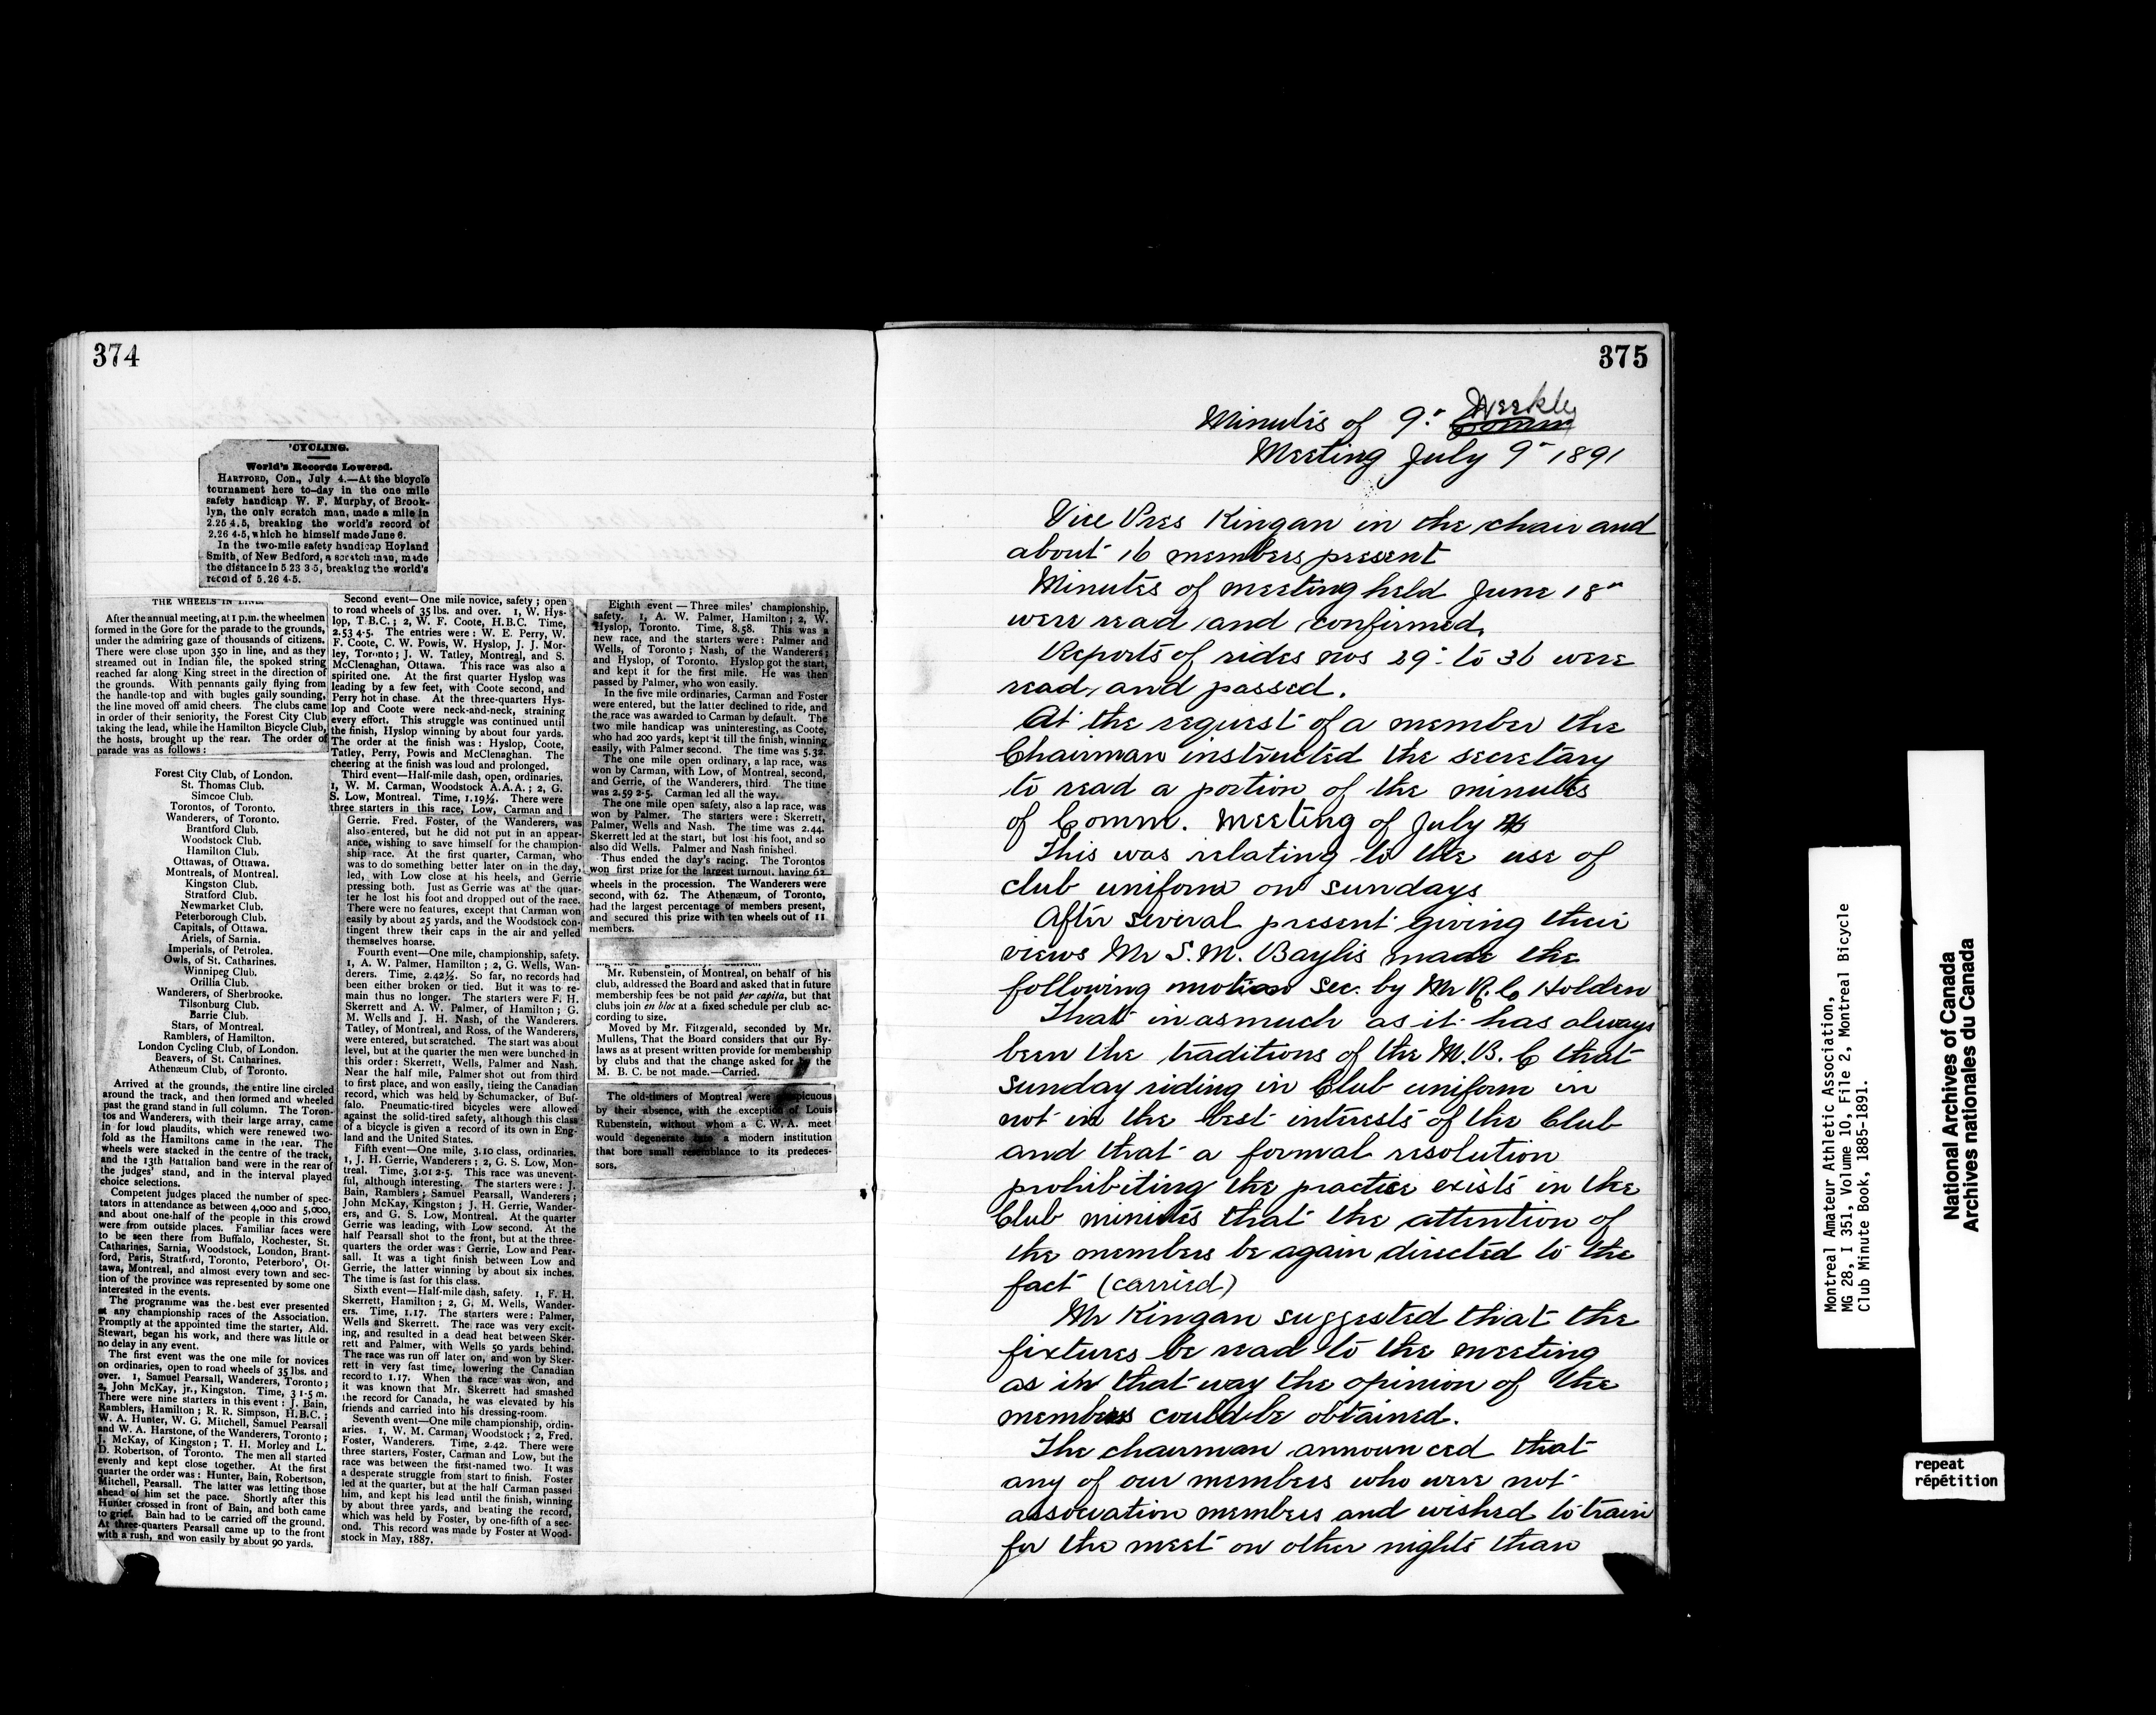 374
'CYCLING.
World's Records Lowered.
HARTFORD, Con., July 4.—At the bicycle
tournament here to-day in the one mile
safety handicap W. F. Murphy, of Brook-
lyn, the only scratch man, made a mile in
2.25 4.5, breaking the world's record of
2.26 4-5, which he himself made June 6.
In the two-mile safety handicap Hoyland
Smith, of New Bedford, a scratch man, made
the distance in 5 23 3-5, breaking the world's
record of 5.26 4-5.
THE WHEELS IN LINE.
After the annual meeting, at 1 p.m. the wheelmen
formed in the Gore for the parade to the grounds,
under the admiring gaze of thousands of citizens.
There were close upon 350 in line, and as they
streamed out in Indian file, the spoked string
reached far along King street in the direction of
the grounds. With pennants gaily flying from
the handle-top and with bugles gaily sounding,
the line moved off amid cheers. The clubs came
in order of their seniority, the Forest City Club
taking the lead, while the Hamilton Bicycle Club,
the hosts, brought up the rear. The order of
parade was as follows:
Forest City Club, of London.
St. Thomas Club.
Simcoe Club.
Torontos, of Toronto.
Wanderers, of Toronto.
Brantford Club.
Woodstock Club.
Hamilton Club.
Ottawas, of Ottawa.
Montreals, of Montreal.
Kingston Club.
Stratford Club.
Newmarket Club.
Peterborough Club.
Capitals, of Ottawa.
Ariels, of Sarnia.
Imperials, of Petrolea.
Owls, of St. Catharines.
Winnipeg Club.
Orillia Club.
Wanderers, of Sherbrooke.
Tilsonburg Club.
Barrie Club.
Stars, of Montreal.
Ramblers, of Hamilton.
London Cycling Club, of London.
Beavers, of St. Catharines.
Athenæum Club, of Toronto.
Arrived at the grounds, the entire line circled
around the track, and then formed and wheeled
past the grand stand in full column. The Toron-
tos and Wanderers, with their large array, came
in for loud plaudits, which were renewed two-
fold as the Hamiltons came in the rear. The
wheels were stacked in the centre of the track,
and the 13th Battalion band were in the rear of
the judges' stand, and in the interval played
choice selections.
Competent judges placed the number of spec-
tators in attendance as between 4,000 and 5,000,
and about one-half of the people in this crowd
were from outside places. Familiar faces were
to be seen there from Buffalo, Rochester, St.
Catharines, Sarnia, Woodstock, London, Brant-
ford, Paris, Stratford, Toronto, Peterboro', Ot-
tawa, Montreal, and almost every town and sec-
tion of the province was represented by some one
interested in the events.
The programme was the best ever presented
at any championship races of the Association.
Promptly at the appointed time the starter, Ald.
Stewart, began his work, and there was little or
no delay in any event.
The first event was the one mile for novices
on ordinaries, open to road wheels of 35 lbs. and
over. 1, Samuel Pearsall, Wanderers, Toronto;
2, John McKay, jr., Kingston. Time, 3 1-5 m.
There were nine starters in this event: J. Bain,
Ramblers, Hamilton; R. R. Simpson, H.B.C.;
W. A. Hunter, W. G. Mitchell, Samuel Pearsall
and W. A. Harstone, of the Wanderers, Toronto;
J. McKay, of Kingston; T. H. Morley and L.
D. Robertson, of Toronto. The men all started
evenly and kept close together. At the first
quarter the order was: Hunter, Bain, Robertson,
Mitchell, Pearsall. The latter was letting those
ahead of him set the pace. Shortly after this
Hunter crossed in front of Bain, and both came
to grief. Bain had to be carried off the ground.
At three-quarters Pearsall came up to the front
with a rush, and won easily by about 90 yards.
Second event—One mile novice, safety; open
to road wheels of 35 lbs. and over. 1, W. Hys-
lop, T.B.C.; 2, W. F. Coote, H.B.C. Time,
2.53 4-5. The entries were: W. E. Perry, W.
F. Coote, C. W. Powis, W. Hyslop, J. J. Mor-
ley, Toronto; J. W. Tatley, Montreal, and S.
McClenaghan, Ottawa. This race was also a
spirited one. At the first quarter Hyslop was
leading by a few feet, with Coote second, and
Perry hot in chase. At the three-quarters Hys-
lop and Coote were neck-and-neck, straining
every effort. This struggle was continued until
the finish, Hyslop winning by about four yards.
The order at the finish was: Hyslop, Coote,
Tatley, Perry, Powis and McClenaghan. The
cheering at the finish was loud and prolonged.
Third event—Half-mile dash, open, ordinaries.
1, W. M. Carman, Woodstock A.A.A.; 2, G.
S. Low, Montreal. Time, 1.19½. There were
three starters in this race, Low, Carman and
Gerrie. Fred. Foster, of the Wanderers, was
also entered, but he did not put in an appear-
ance, wishing to save himself for the champion-
ship race. At the first quarter, Carman, who
was to do something better later on in the day,
led, with Low close at his heels, and Gerrie
pressing both. Just as Gerrie was at the quar-
ter he lost his foot and dropped out of the race.
There were no features, except that Carman won
easily by about 25 yards, and the Woodstock con-
tingent threw their caps in the air and yelled
themselves hoarse.
Fourth event—One mile, championship, safety.
1, A. W. Palmer, Hamilton; 2, G. Wells, Wan-
derers. Time, 2.42½. So far, no records had
been either broken or tied. But it was to re-
main thus no longer. The starters were F. H.
Skerrett and A. W. Palmer, of Hamilton; G.
M. Wells and J. H. Nash, of the Wanderers.
Tatley, of Montreal, and Ross, of the Wanderers,
were entered, but scratched. The start was about
level, but at the quarter the men were bunched in
this order: Skerrett, Wells, Palmer and Nash.
Near the half mile, Palmer shot out from third
to first place, and won easily, tieing the Canadian
record, which was held by Schumacker, of Buf-
falo. Pneumatic-tired bicycles were allowed
against the solid-tired safety, although this class
of a bicycle is given a record of its own in Eng-
land and the United States.
Fifth event—One mile, 3.10 class, ordinaries.
1, J. H. Gerrie, Wanderers; 2, G. S. Low, Mon-
treal. Time, 3.01 2-5. This race was unevent-
ful, although interesting. The starters were: J.
Bain, Ramblers; Samuel Pearsall, Wanderers;
John McKay, Kingston; J. H. Gerrie, Wander-
ers, and G. S. Low, Montreal. At the quarter
Gerrie was leading, with Low second. At the
half Pearsall shot to the front, but at the three-
quarters the order was: Gerrie, Low and Pear-
sall. It was a tight finish between Low and
Gerrie, the latter winning by about six inches.
The time is fast for this class.
Sixth event—Half-mile dash, safety. 1, F. H.
Skerrett, Hamilton; 2, G. M. Wells, Wander-
ers. Time, 1.17. The starters were: Palmer,
Wells and Skerrett. The race was very excit-
ing, and resulted in a dead heat between Sker-
rett and Palmer, with Wells 50 yards behind.
The race was run off later on, and won by Sker-
rett in very fast time, lowering the Canadian
record to 1.17. When the race was won, and
it was known that Mr. Skerrett had smashed
the record for Canada, he was elevated by his
friends and carried into his dressing-room.
Seventh event—One mile championship, ordin-
aries. 1, W. M. Carman, Woodstock; 2, Fred.
Foster, Wanderers. Time, 2.42. There were
three starters, Foster, Carman and Low, but the
race was between the first-named two. It was
a desperate struggle from start to finish. Foster
led at the quarter, but at the half Carman passed
him, and kept his lead until the finish, winning
by about three yards, and beating the record,
which was held by Foster, by one-fifth of a sec-
ond. This record was made by Foster at Wood-
stock in May, 1887.
Eighth event—Three miles' championship,
safety. 1, A. W. Palmer, Hamilton; 2, W.
Hyslop, Toronto. Time, 8.58. This was a
new race, and the starters were: Palmer and
Wells, of Toronto; Nash, of the Wanderers;
and Hyslop, of Toronto. Hyslop got the start,
and kept it for the first mile. He was then
passed by Palmer, who won easily.
In the five mile ordinaries, Carman and Foster
were entered, but the latter declined to ride, and
the race was awarded to Carman by default. The
two mile handicap was uninteresting, as Coote,
who had 200 yards, kept it till the finish, winning
easily, with Palmer second. The time was 5.32.
The one mile open ordinary, a lap race, was
won by Carman, with Low, of Montreal, second,
and Gerrie, of the Wanderers, third. The time
was 2.59 2-5. Carman led all the way.
The one mile open safety, also a lap race, was
won by Palmer. The starters were: Skerrett,
Palmer, Wells and Nash. The time was 2.44.
Skerrett led at the start, but lost his foot, and so
also did Wells. Palmer and Nash finished.
Thus ended the day's racing. The Torontos
won first prize for the largest turnout, having 62
wheels in the procession. The Wanderers were
second, with 62. The Athenæum, of Toronto,
had the largest percentage of members present,
and secured this prize with ten wheels out of 11
members.
Mr. Rubenstein, of Montreal, on behalf of his
club, addressed the Board and asked that in future
membership fees be not paid per capita, but that
clubs join en bloc at a fixed schedule per club ac-
cording to size.
Moved by Mr. Fitzgerald, seconded by Mr.
Mullens, That the Board considers that our By-
laws as at present written provide for membership
by clubs and that the change asked for by the
M. B. C. be not made.—Carried.
The old-timers of Montreal were conspicuous
by their absence, with the exception of Louis
Rubenstein, without whom a C. W. A. meet
would degenerate into a modern institution
that bore small resemblance to its predeces-
sors.
375
Minutes of 9th Weekly
Meeting July 9th 1891
Vice Pres Kingan in the chair and
about 16 members present
Minutes of meeting held June 18th
were read and confirmed.
Reports of rides nos 29th to 36 were
read, and passed.
At the request of a member the
Chairman instructed the secretary
to read a portion of the minutes
of Comm. meeting of July
This was relating to the use of
club uniform on sundays
After several present giving their
views Mr S. M. Baylis made the
following motion Sec. by Mr R. C Holden
That inasmuch as it has always
been the traditions of the M. B. C that
sunday riding in Club uniform in
not in the best interests of the Club
and that a formal resolution
prohibiting the practice exists in the
Club minutes that the attention of
the members be again directed to the
fact (carried)
Mr Kingan suggested that the
fixtures be read to the meeting
as in that way the opinion of the
members could be obtained.
The chairman announced that
any of our members who were not
association members and wished to train
for the meet on other nights than
Montreal Amateur Athletic Association,
MG 28, I 351, Volume 10, File 2, Montreal Bicycle
Club Minute Book, 1885-1891.
National Archives of Canada
Archives nationales du Canada
repeat
répétition